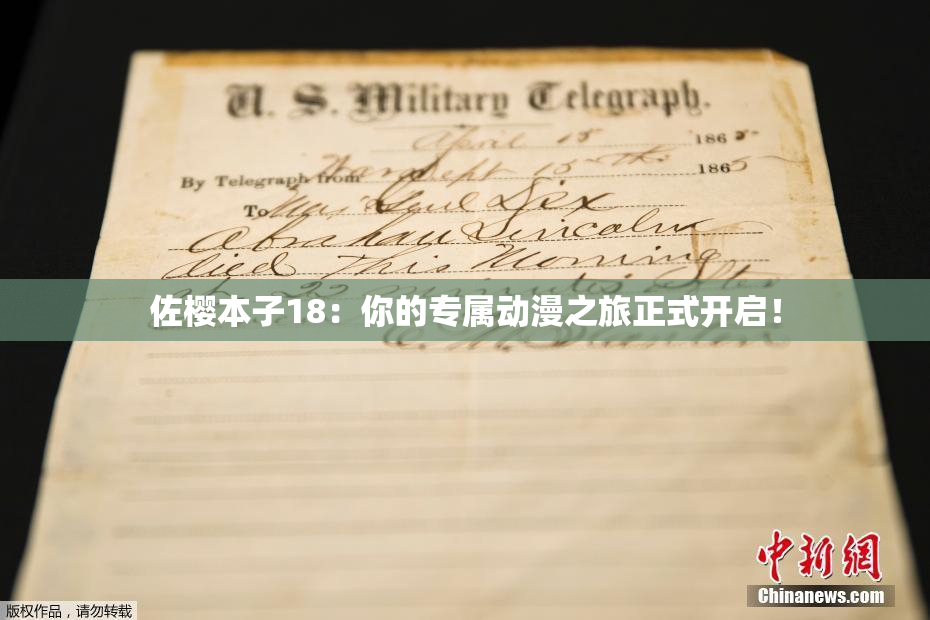 U. S. Military Telegraph.
April 15 1865
By Telegraph from War Dept 15th 1865
To Maj Genl Dix
Abraham Lincoln
died This Morning
at 22 minutes after
佐樱本子18：你的专属动漫之旅正式开启！
E. M. Stanton
中新网
Chinanews.com
版权作品，请勿转载